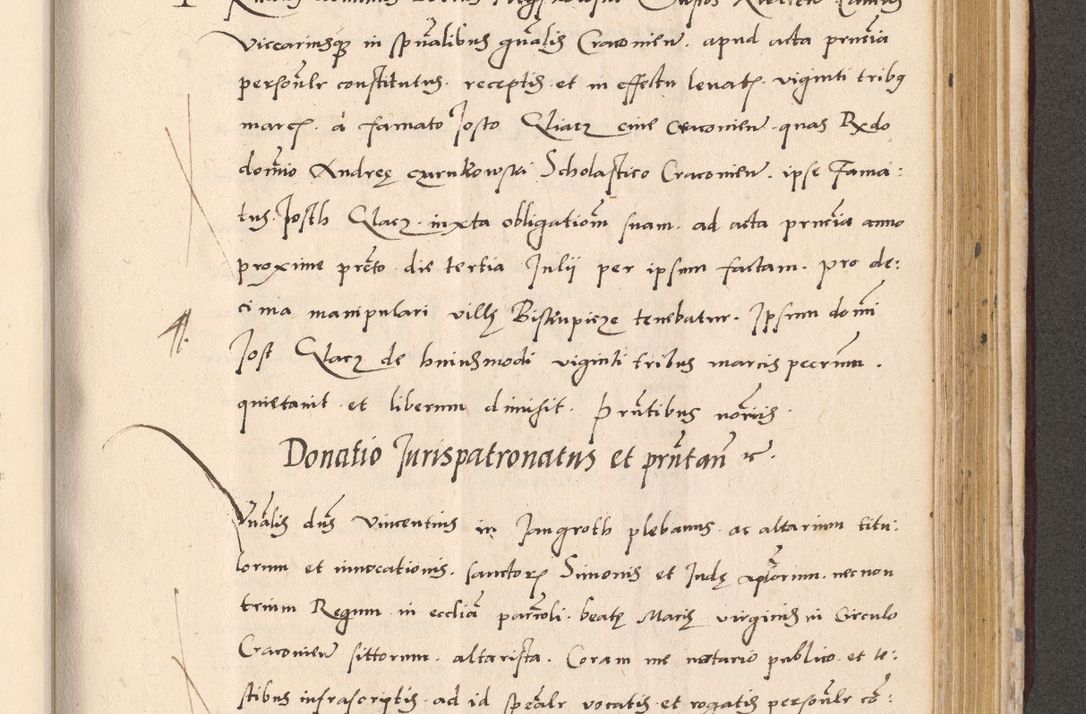 Viccariusque in spũalibus gñalis Cracovien̄. apud acta pñcia
personl̄r constitutus. receptis et in effectu levatꝭ. viginti tribꝯ
marcꝭ. à famato Josto Glacz cive cracovien̄. quas Rxdo
dom̄io Andreę czarnkowski Scholastico Cracovien̄. ipse Fama:
tus. Josth Glacz. iuxta obligatiom̄ suam. ad acta pñcia anno
proxime prẽto die tertia Julii per ipsum factam. pro de:
cima manipulari villę Biskupicze tenebatur. Ipsum dom̄i
Jost Glacz de huiusmodi viginti tribus marcis pecr̄um.
quietavit et liberum dimisit. Pr̄ntibus nõriis.
Donatio Jurispatronatus et pr̄ntan̄ ꝛc.
Vnãlis dñs Vincentius in Jangroth plebanus. ac altarium titu:
lorum et invocationis. sanctorꝝ Simonis et Judę aplõrum. necnon
trium Regum in ecclĩa parr̃oli. beatę Marię virginis in Circulo
Cracovien̄ sittorum. altarista. Coram me notario publico et te:
stibus infrascriptis. ad id speãlr vocatis et rogatis personl̄r cõ: